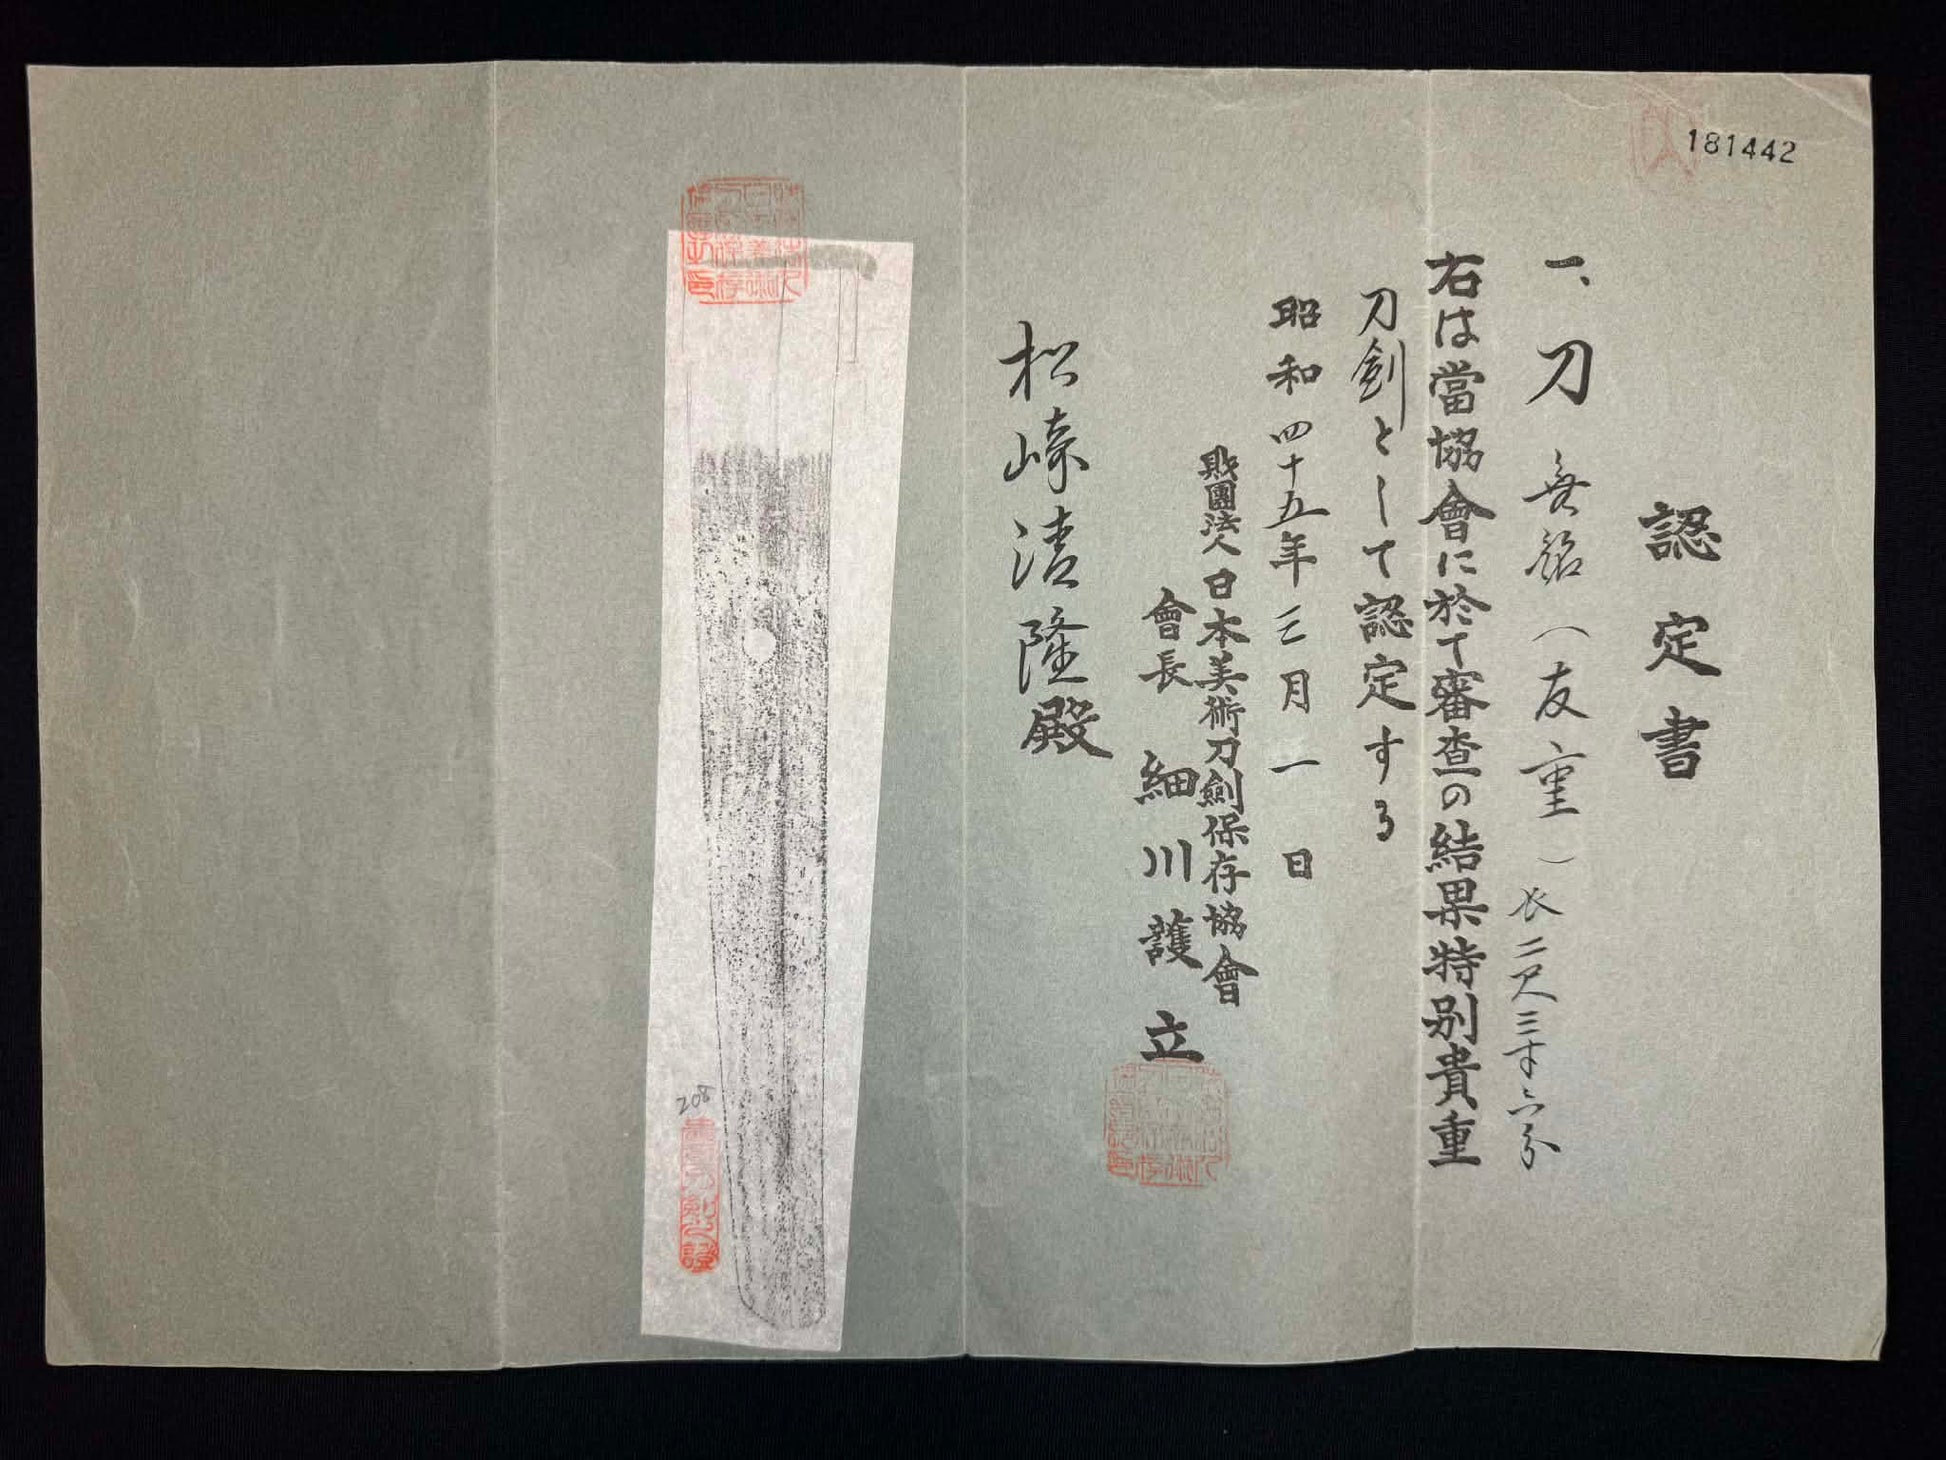 181442
認定書
一、刀 無銘(友重)長二尺三寸六分
右は當協會に於て審査の結果特別貴重
刀劍として認定する
昭和四十五年三月一日
財團法人日本美術刀劍保存協會
會長 細川護立
松崎清隆殿
208